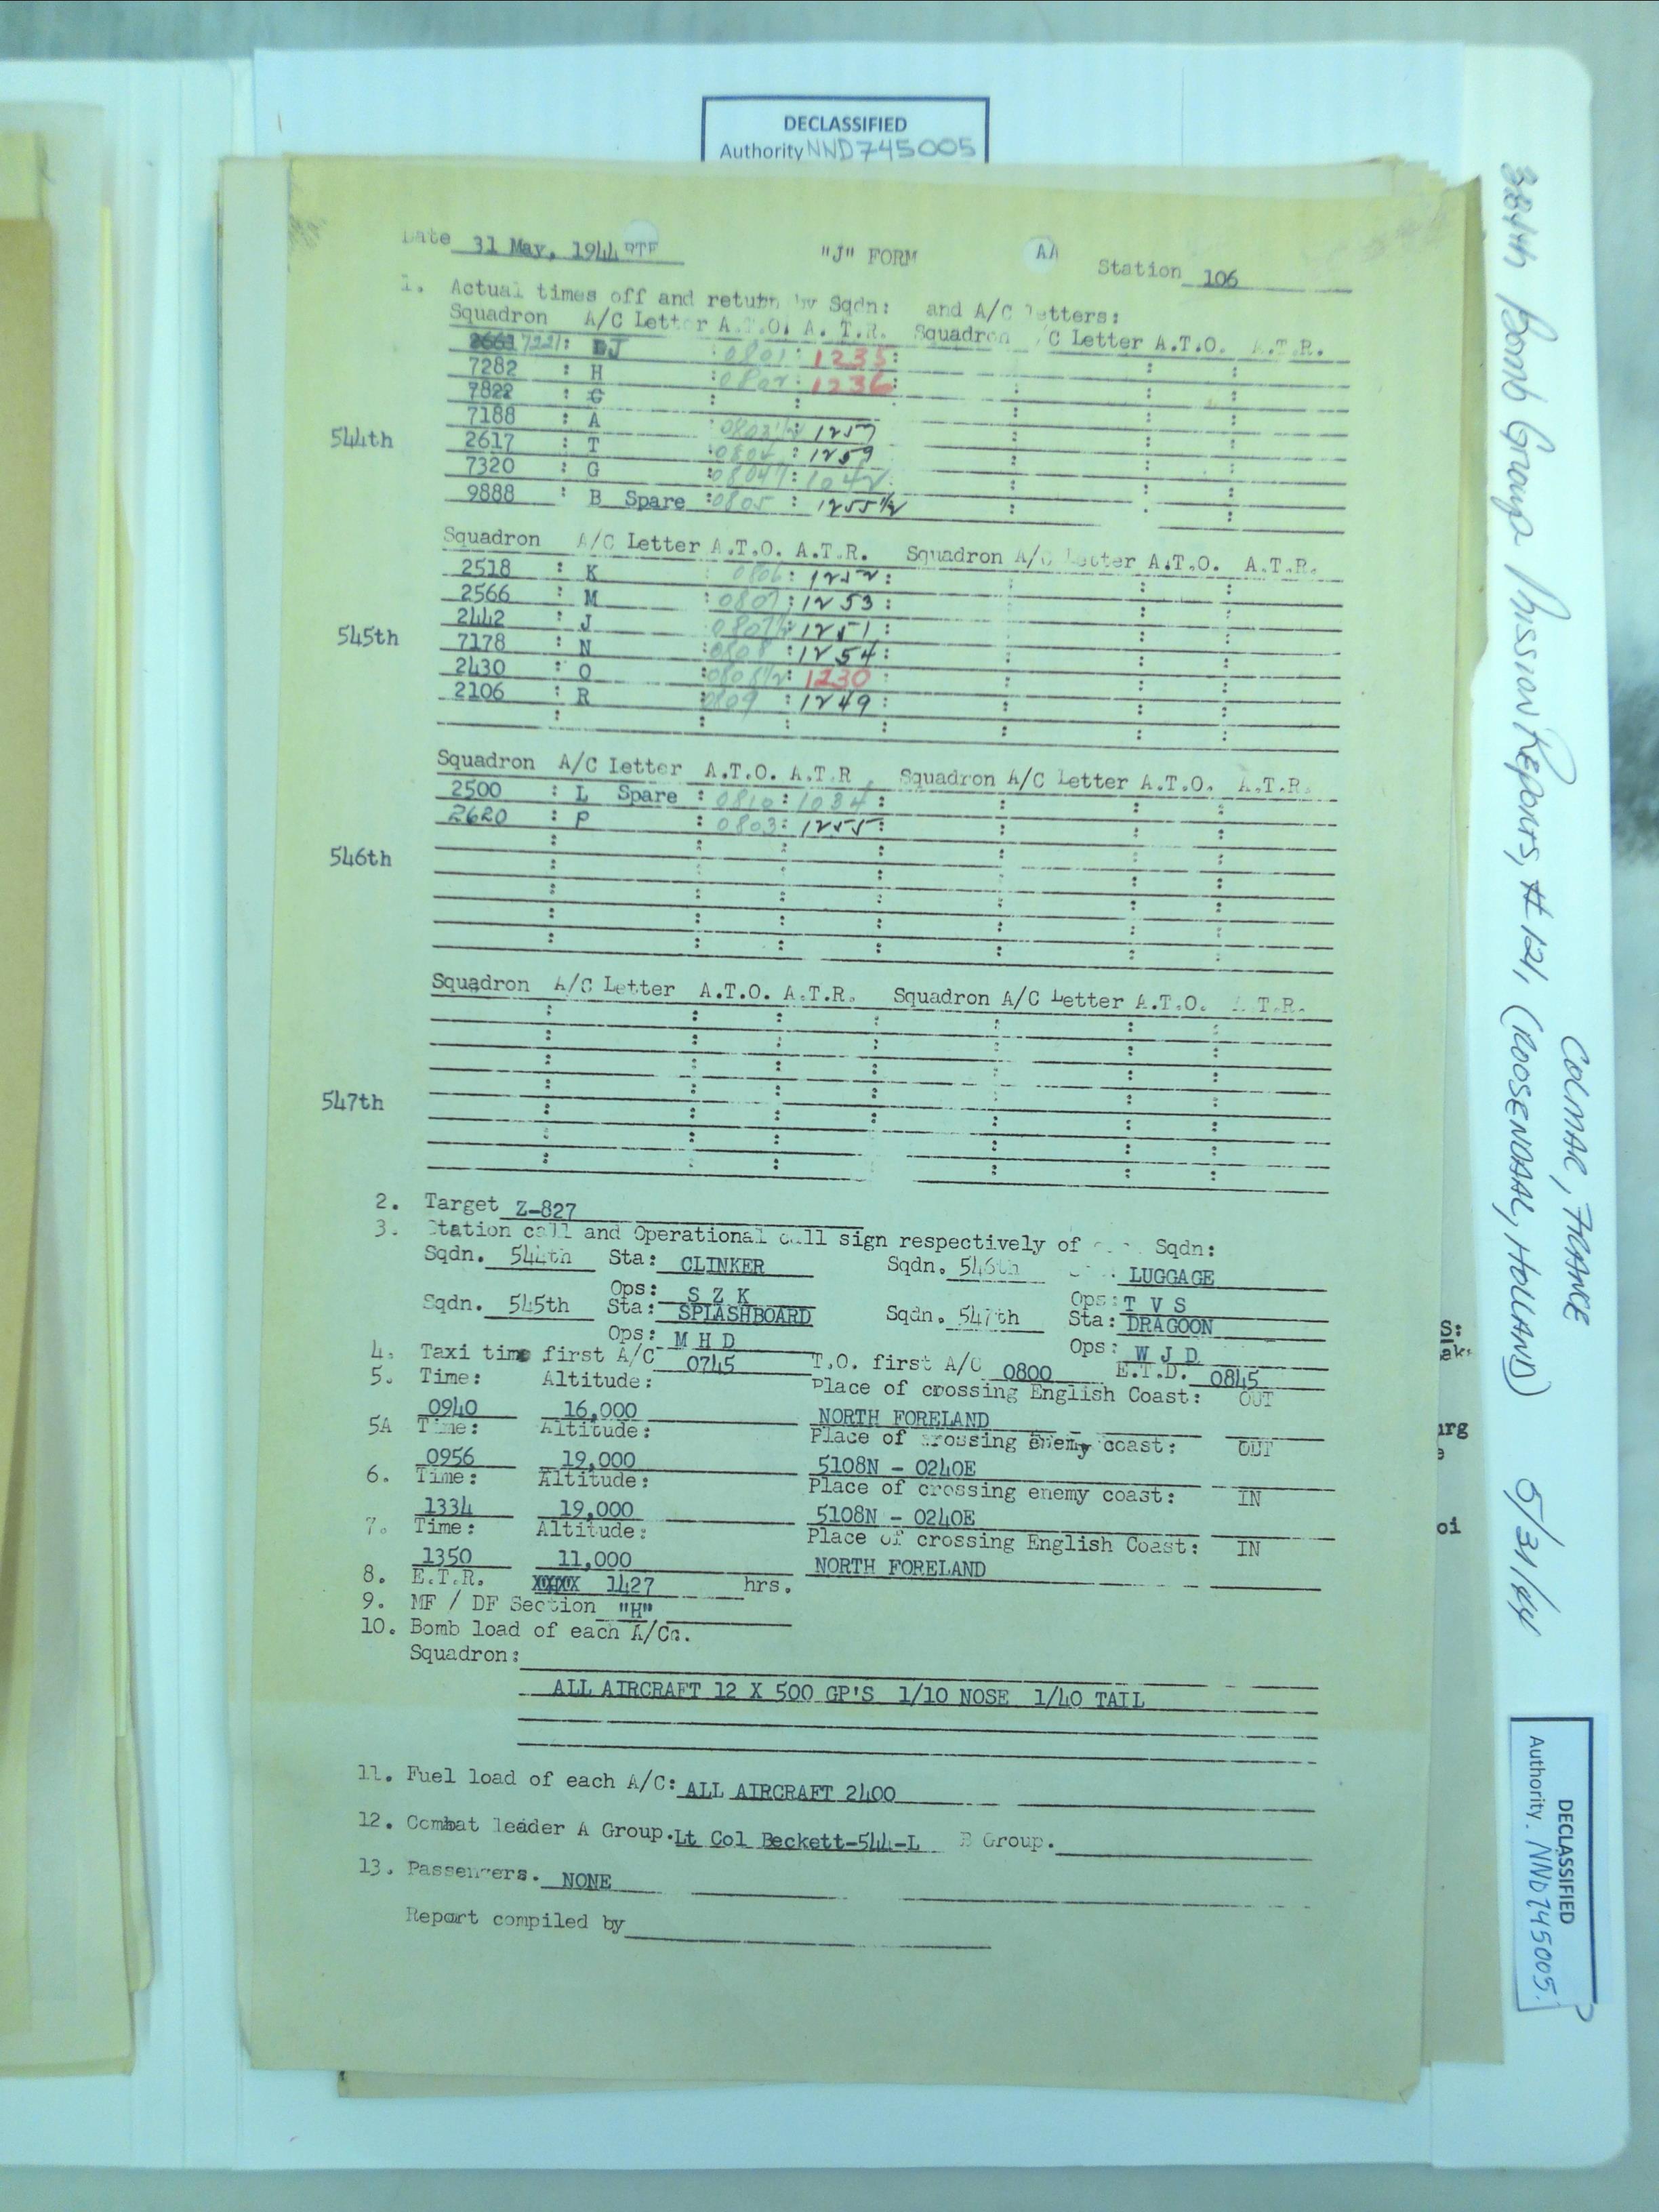 DECLASSIFIED
Authority NND745005
Date 31 May, 1944 "J" FORM AA Station 106
1. Actual times off and return by Sqdn: and A/C letters:
Squadron A/C Letter A.T.O. A.T.R. Squadron A/C Letter A.T.O. A.T.R.
J 0801 : 1235 :
7282 : H : 0802 : 1236 :
7822 : G : :
7188 : A : 0803 1/2 : 1257
544th 2617 : T : 0804 : 1259
7320 : G : : 1042
9888 : B Spare : 0805 : 1255 1/2
Squadron A/C Letter A.T.O. A.T.R. Squadron A/C Letter A.T.O. A.T.R.
2518 : K : 0806 : 1252 :
2566 : M : 0807 : 1253 :
2442 : J : 0807 1/2 : 1251 :
545th 7178 : N : 0808 : 1254 :
2430 : O : 0808 1/2 : 1230 :
2106 : R : 0809 : 1249 :
Squadron A/C letter A.T.O. A.T.R Squadron A/C Letter A.T.O. A.T.R.
2500 : L Spare : 0810 : 1034 :
2620 : P : 0803 : 1255 :
546th
Squadron A/C Letter A.T.O. A.T.R. Squadron A/C Letter A.T.O. A.T.R.
547th
2. Target Z-827
3. Station call and Operational call sign respectively of Sqdn:
Sqdn. 544th Sta: CLINKER Sqdn. 546th LUGGAGE
Ops: S Z K Ops: T V S
Sqdn. 545th Sta: SPLASHBOARD Sqdn. 547th Sta: DRAGOON
Ops: M H D Ops: W J D
4. Taxi time first A/C 0745 T.O. first A/C 0800 E.T.D. 0845
5. Time: Altitude: Place of crossing English Coast: OUT
0940 16,000 NORTH FORELAND
5A Time: Altitude: Place of crossing enemy coast: OUT
0956 19,000 5108N - 0240E
6. Time: Altitude: Place of crossing enemy coast: IN
1334 19,000 5108N - 0240E
7. Time: Altitude: Place of crossing English Coast: IN
1350 11,000 NORTH FORELAND
8. E.T.R. XXXXX 1427 hrs.
9. MF / DF Section "H"
10. Bomb load of each A/Cs.
Squadron:
ALL AIRCRAFT 12 X 500 GP'S 1/10 NOSE 1/40 TAIL
11. Fuel load of each A/C: ALL AIRCRAFT 2400
12. Combat leader A Group. Lt Col Beckett-544-L B Group.
13. Passengers. NONE
Report compiled by
384th Bomb Group Mission Reports, #121, (ROOSENDAAL, HOLLAND) 5/31/44
COLMAR, FRANCE
DECLASSIFIED
Authority. NND745005.